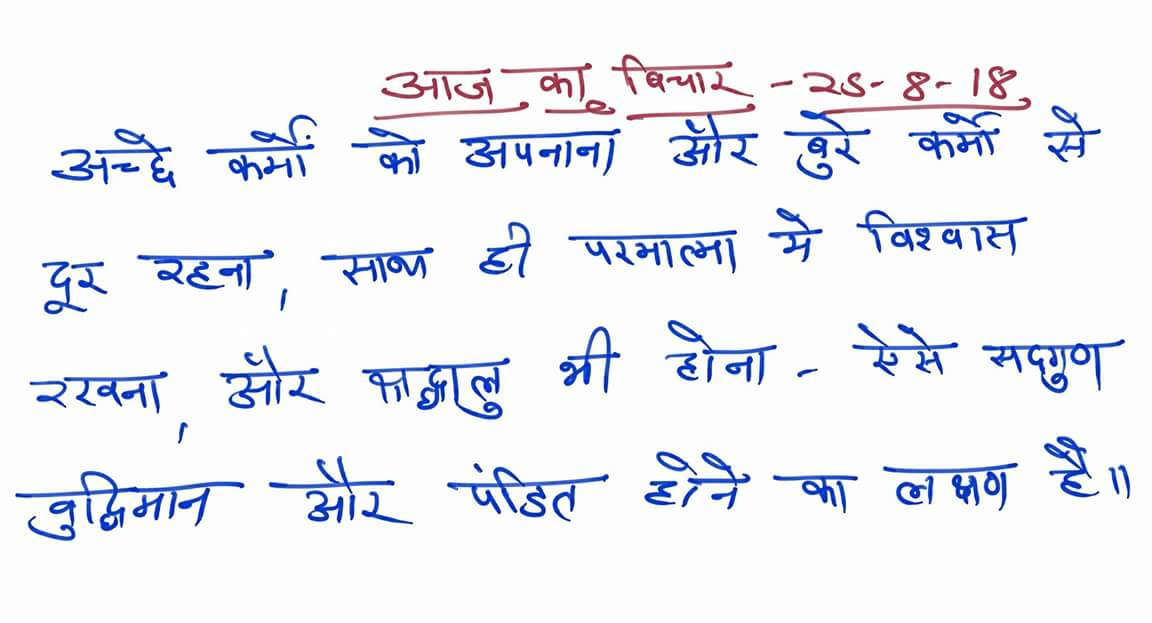 आज का विचार - 25-8-18
अच्छे कर्मों को अपनाना और बुरे कर्मो से
दूर रहना, साथ ही परमात्मा मे विश्वास
रखना, और श्रद्धालु भी होना - ऐसे सदगुण
बुद्धिमान और पंडित होने का लक्षण है॥